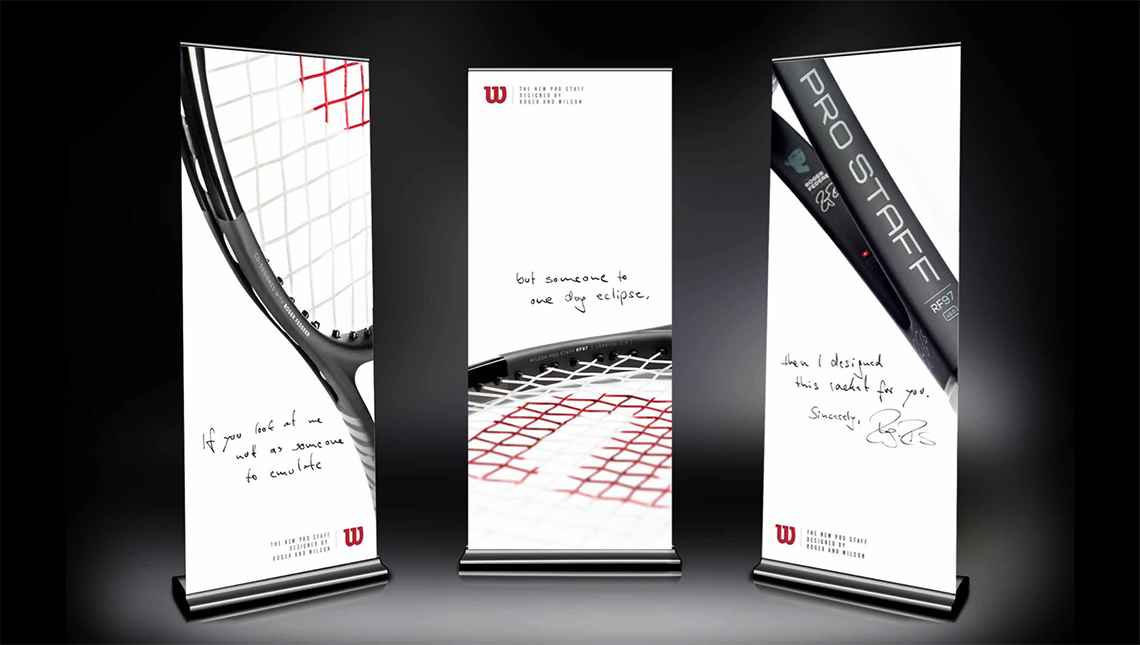 CO-DESIGNED WITH ROGER FEDERER
If you look at me
not as someone
to emulate
THE NEW PRO STAFF
DESIGNED BY
ROGER AND WILSON
W
W
THE NEW PRO STAFF
DESIGNED BY
ROGER AND WILSON
but someone to
one day eclipse,
WILSON PRO STAFF RF97
PRO STAFF
ROGER
FEDERER
RF97
then I designed
this racket for you.
Sincerely,
W
THE NEW PRO STAFF
DESIGNED BY
ROGER AND WILSON